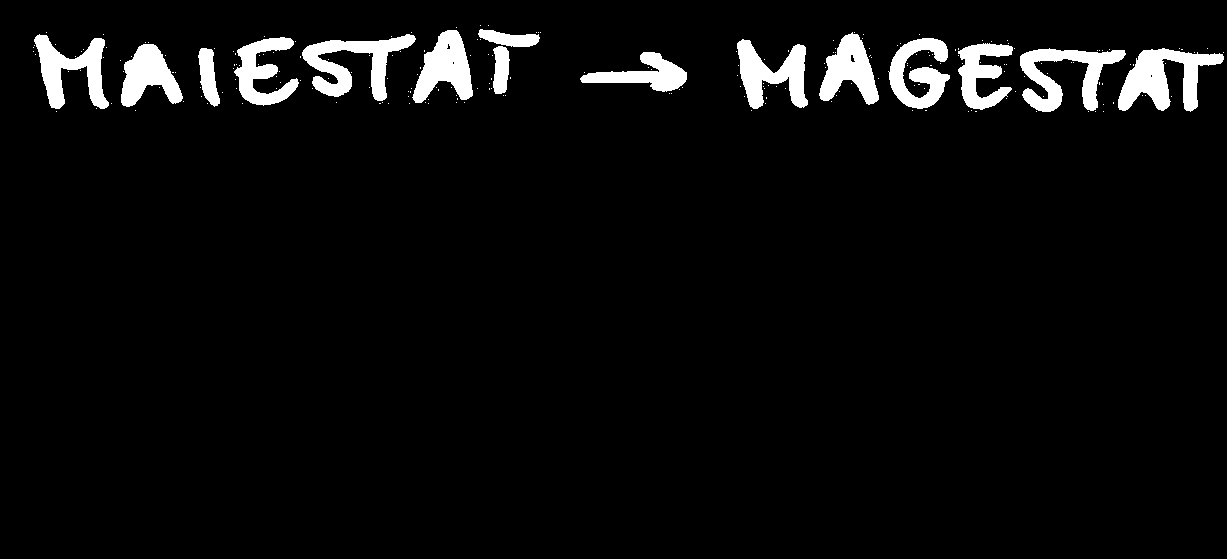 MAIESTAT → MAGESTAT